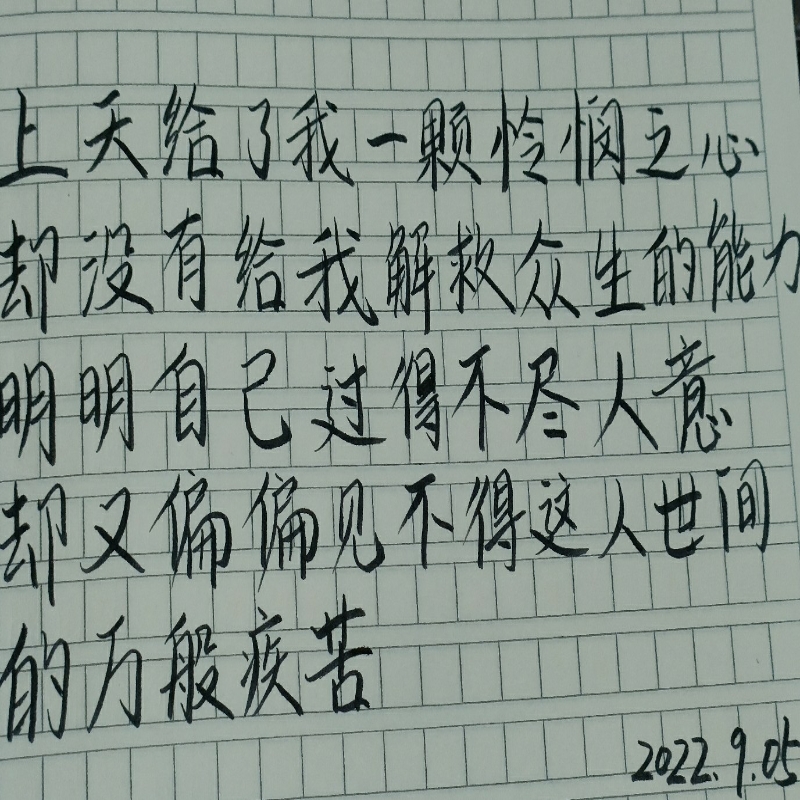 上天给了我一颗怜悯之心
却没有给我解救众生的能力
明明自己过得不尽人意
却又偏偏见不得这人世间
的万般疾苦
2022.9.05